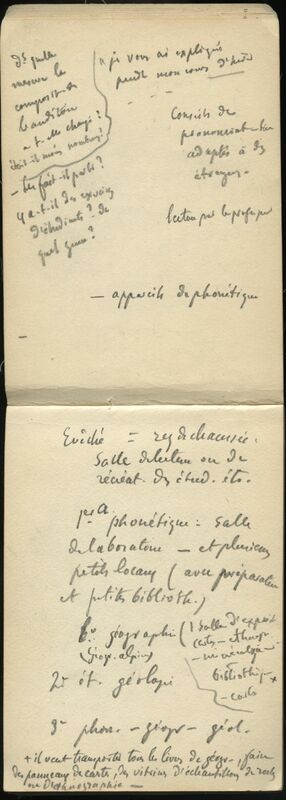 ds quelle
mesure la
composit. de
l'auditoire
a-t-elle changé?
était-il moins nombreux?
– Les fait-il parler?
y a-t-il des exercices
d'étudiants? de
quel genre?
je vous ai expliqué
pendt mon cours
Conseils de
prononciation
adaptés à des
étrangers.
lecture par le professeur
– appareils de phonétique
Evêché = rez de chaussée.
Salle de lecture ou de
récréat. des étud. étr.
1er
phonétique : Salle
de laboratoire – et plusieurs
petits locaux (avec préparateur
et petite biblioth.)
géographie (1 Salle d'expos
(géogr. alpine)
cartes –
bibliothèque
cartes
2e ét. géologie
3e phon. – géogr – géol.
+ il veut transporter tous les livres de géogr., faire
des panneaux de cartes, des vitrines d'échantillons de roches
ou d'ethnographie –